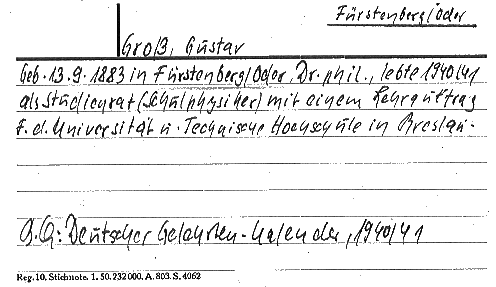 Fürstenberg/Oder
Groß, Gustav
Geb. 13.9.1883 in Fürstenberg/Oder, Dr. phil., lebte 1940/41
als Studienrat (Schulphysiker) mit einem Lehrauftrag
f. d. Universität u. Technische Hochschule in Breslau.
Q.Q: Deutscher Gelehrten-Kalender, 1940/41
Reg. 10. Stichnote. 1. 50. 232 000. A. 803. S. 4062